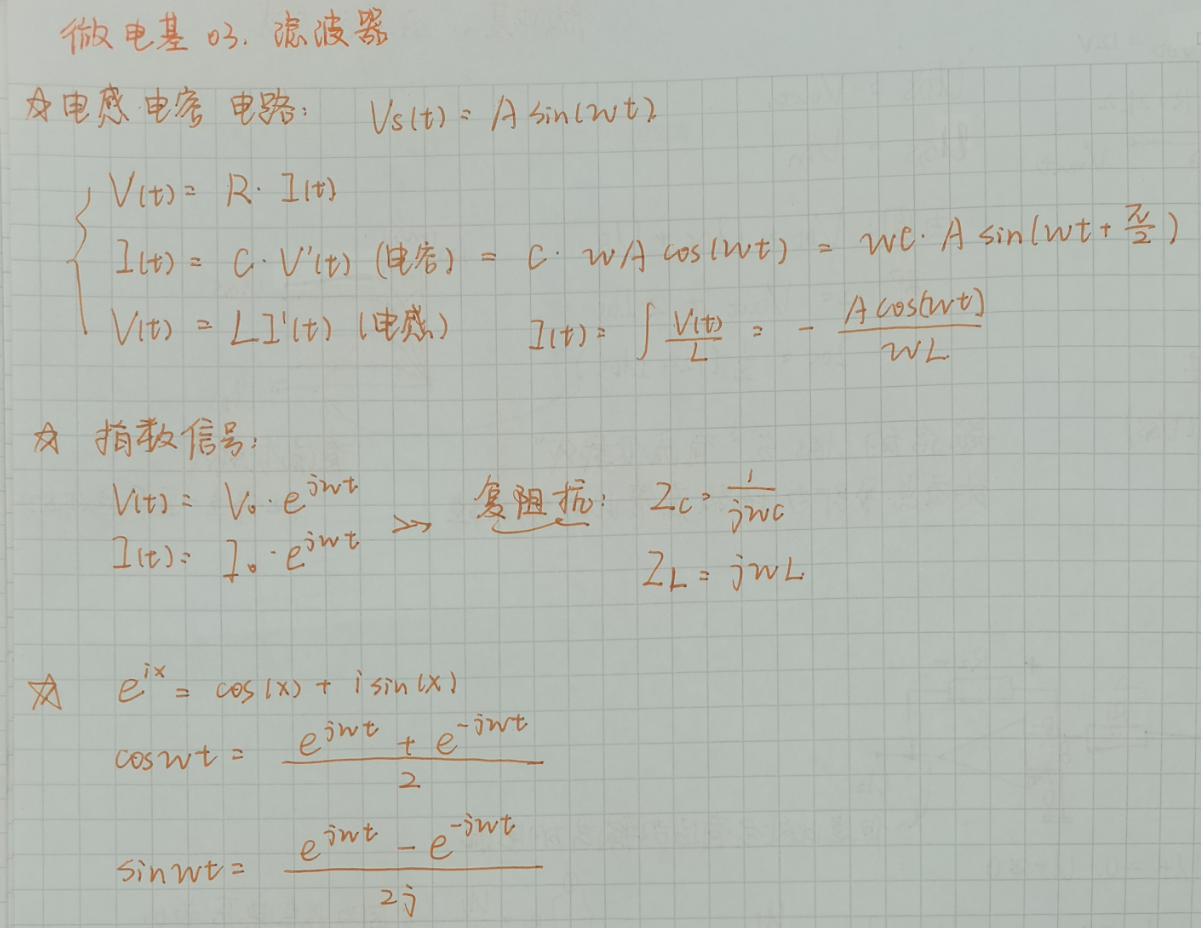 微电基 03. 滤波器
☆电感 电容 电路: Vs(t) = A sin(wt).
V(t) = R · I(t)
I(t) = C · V'(t) (电容) = C · wA cos(wt) = wC · A sin(wt + π/2)
V(t) = L I'(t) (电感) I(t) = ∫ V(t)/L = - A cos(wt)/wL
☆ 指数信号:
V(t) = V₀ · e^{jwt} >> 复阻抗: Zc = 1/jwC
I(t) = I₀ · e^{jwt} Z_L = jwL
☆ e^{ix} = cos(x) + i sin(x)
cos wt = (e^{jwt} + e^{-jwt})/2
sin wt = (e^{jwt} - e^{-jwt})/2j